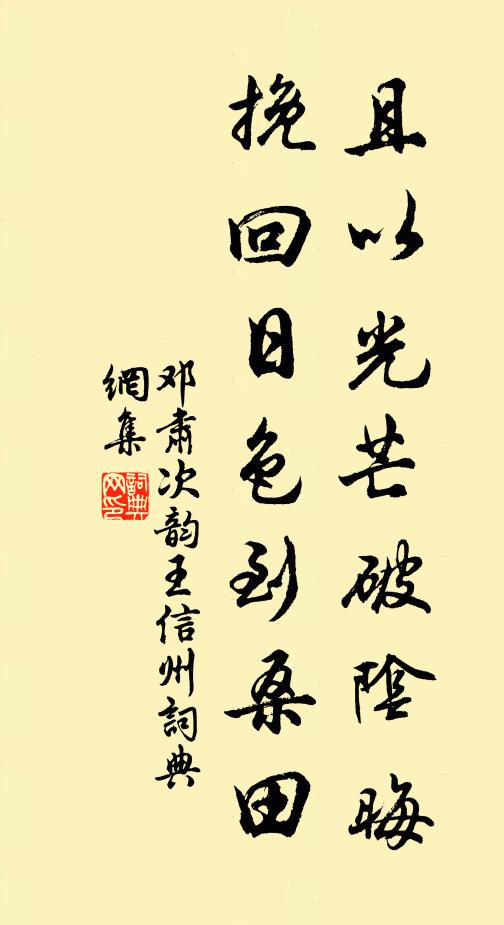 且以光芒破陰晦
挽回日色到桑田
邓肅次韵王信州詞典
網集
詞典
网印